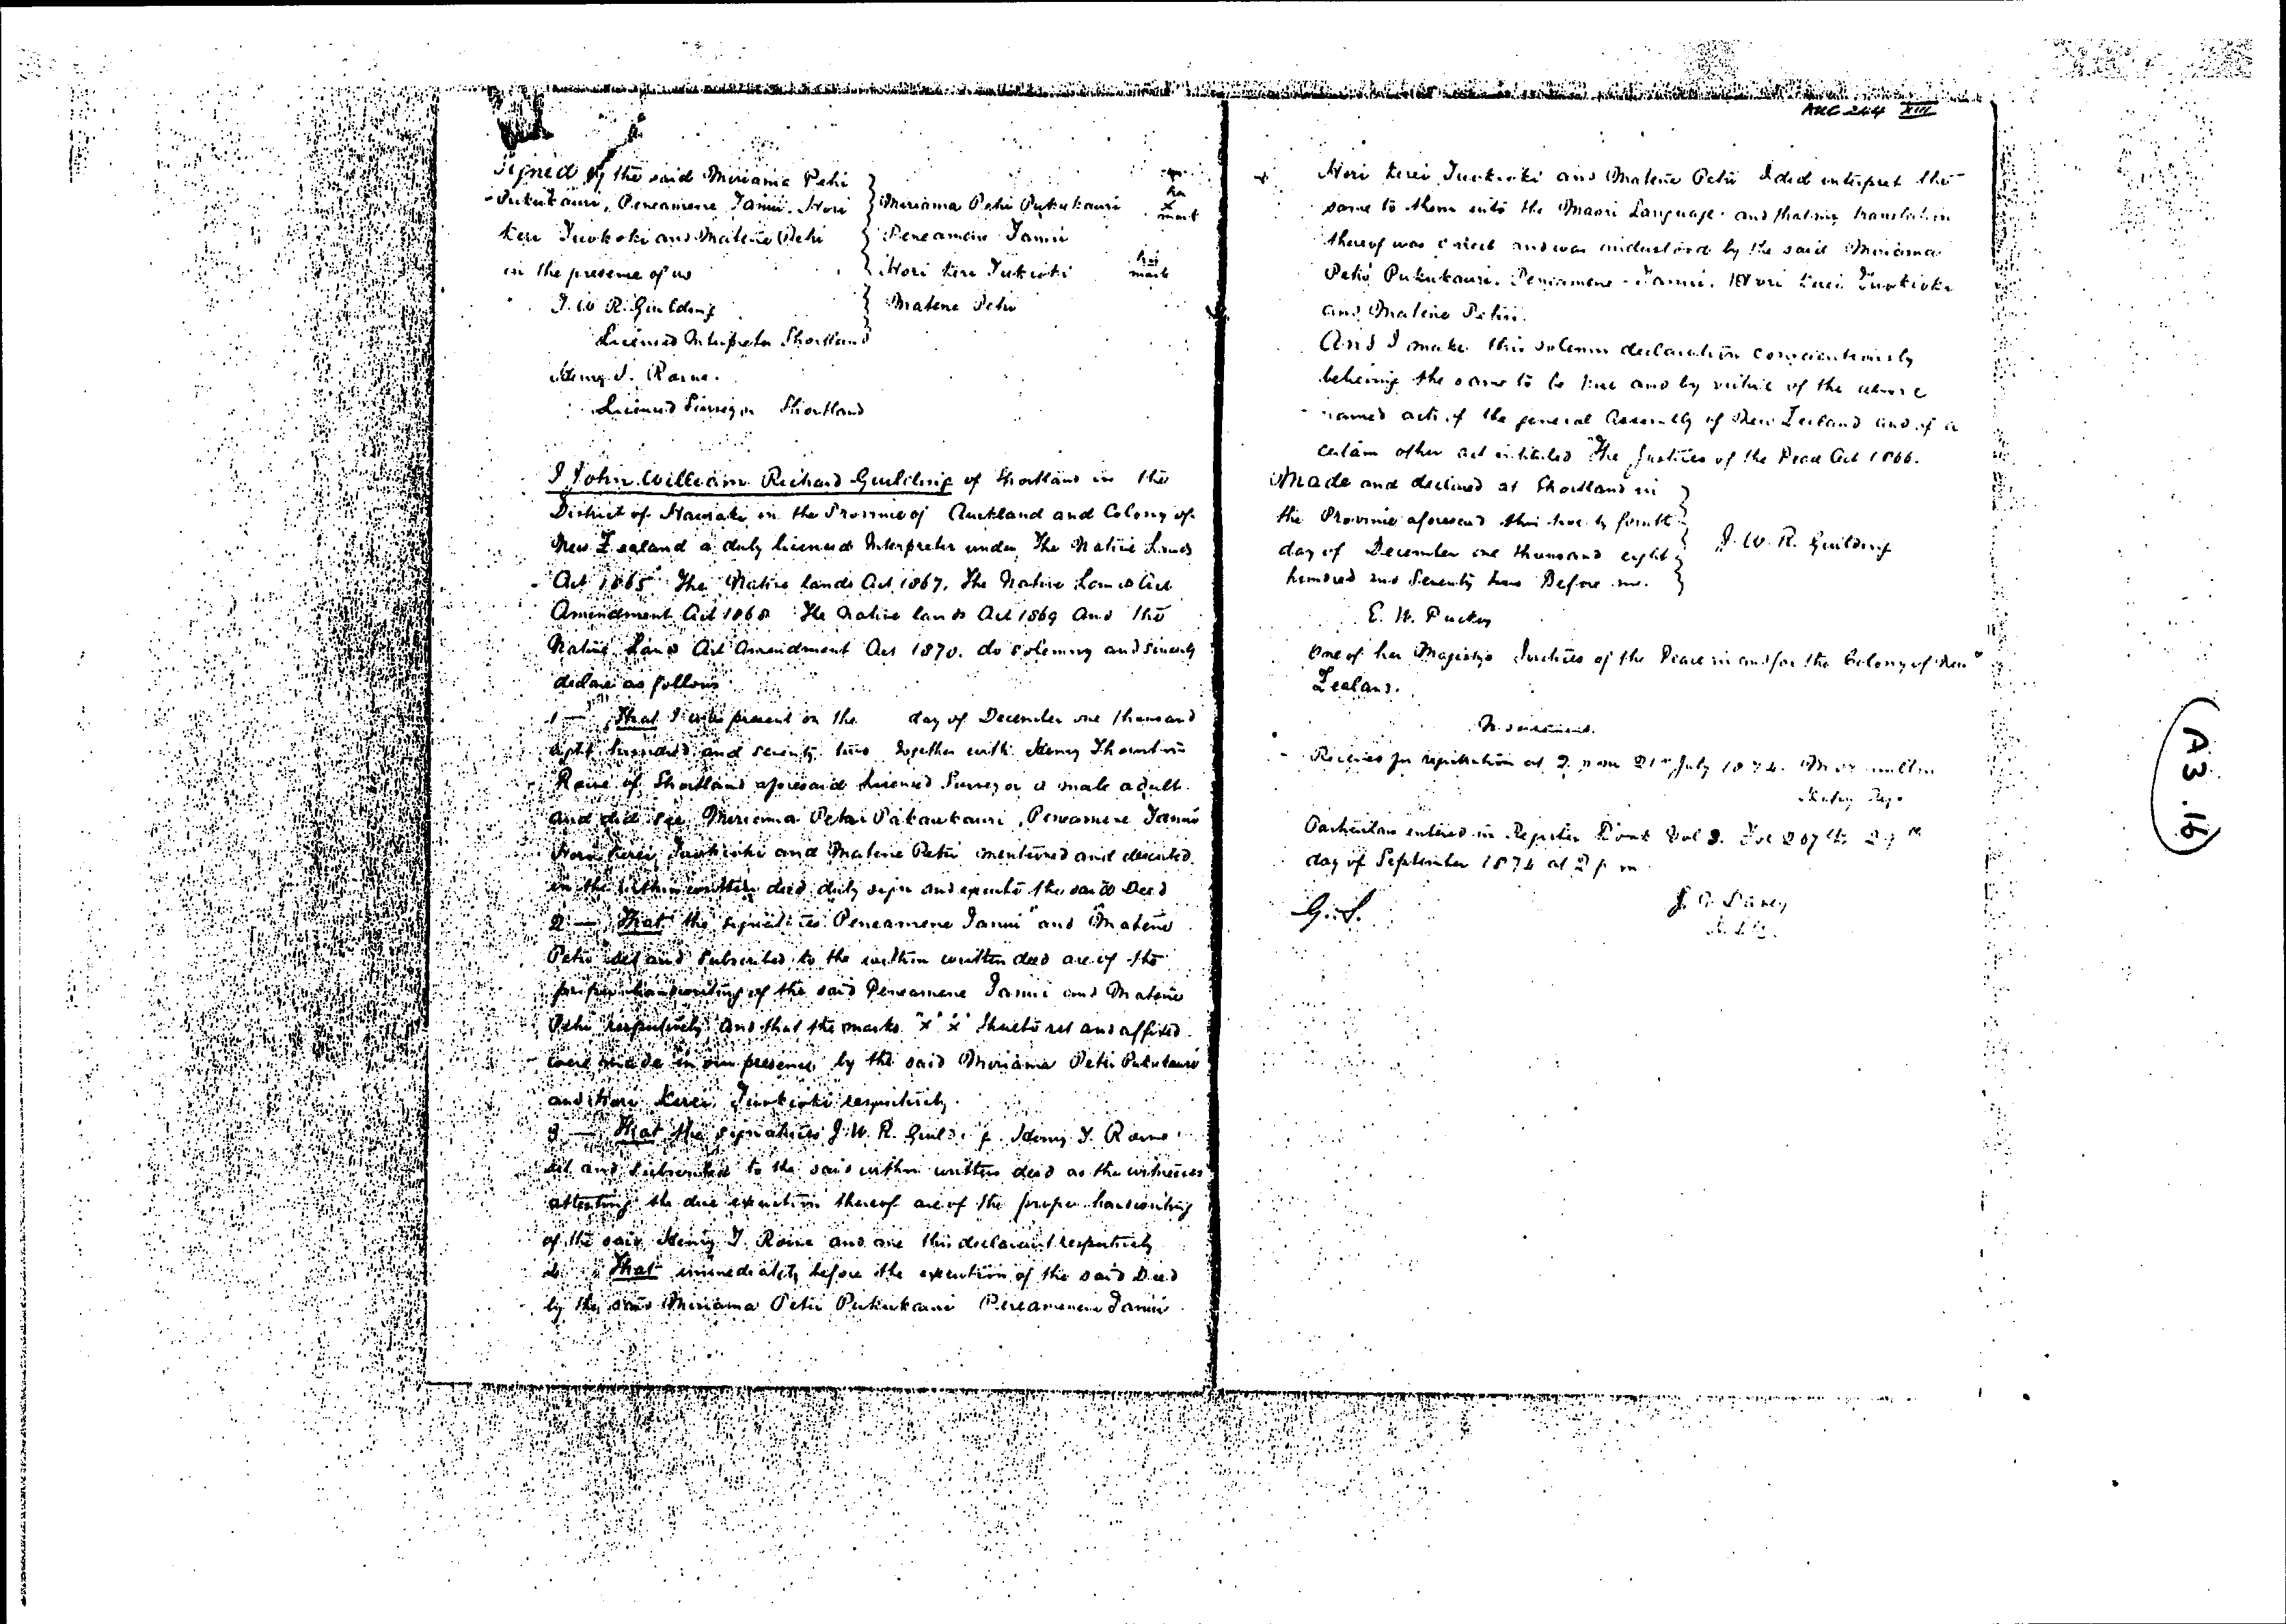 Signed by the said Miriama Pehi
Pukukauri, Peneamene Tanui, Hori
Kerei Tuokioki and Matene Petri
in the presence of us
J. W. R. Guilding
Licensed Interpreter Shortland
Henry T. Rowe.
Licensed Surveyor Shortland
Miriama Petri Pukukauri her x mark
Peneamene Tanui
Hori Kerei Tukioki his mark
Matene Petri
I John William Richard Guilding of Shortland in the
District of Hauraki in the Province of Auckland and Colony of
New Zealand a duly licensed Interpreter under The Native Lands
Act 1865 The Native Lands Act 1867. The Native Lands Act
Amendment Act 1868 The Native lands Act 1869 and the
Native Land Act Amendment Act 1870. do solemny and sincerely
declare as follows
1 — That I was present on the day of December one thousand
eight hundred and seventy two together with Henry
Rowe of Shortland aforesaid Licensed Surveyor a male adult
and did see Miriama Petri Pukukauri, Peneamene Tanui
Hori Kerei Tuokioki and Matene Petri mentioned and described
in the within written deed duly sign and execute the said Deed
2 — That the signatures Peneamene Tanui and Matene
Petri set and subscribed to the within written deed are of the
proper handwriting of the said Peneamene Tanui and Matene
Petri respectively and that the marks "x" "x" thereto set and affixed
were made in our presence by the said Miriama Petri Pukukauri
and Hori Kerei Tuokioki respectively.
3 — That the signatures J. W. R. Henry T. Rowe
set and subscribed to the said within written deed as the witnesses
attesting the due execution thereof are of the proper handwriting
of the said Henry T. Rowe and me this declarant respectively
That immediately before the execution of the said Deed
by the said Miriama Petri Pukukauri Peneamene Tanui
AUC 244 XIII
Hori Kerei Tuokioki and Matene Petri I did interpret the
same to them into the Maori Language and that my translation
thereof was correct and was understood by the said Miriama
Petri Pukukauri, Peneamene Tanui, Hori Kerei Tuokioki
and Matene Petri.
And I make this solemn declaration conscientiously
believing the same to be true and by virtue of the above
named acts of the general Assembly of New Zealand and of a
certain other act intituled "The Justices of the Peace Act 1866.
Made and declared at Shortland in
the Province aforesaid this twenty fourth
day of December one thousand eight
hundred and Seventy two Before me.
J. W. R. Guilding
E. W. Puckey
One of her Majestys Justices of the Peace in and for the Colony of New
Zealand.
Received for registration at 2 p m 21st July 1874.
Particulars entered in Register Book Vol 2. Fol 207
day of September 1874 at 2 p m
G.S.
A3.19